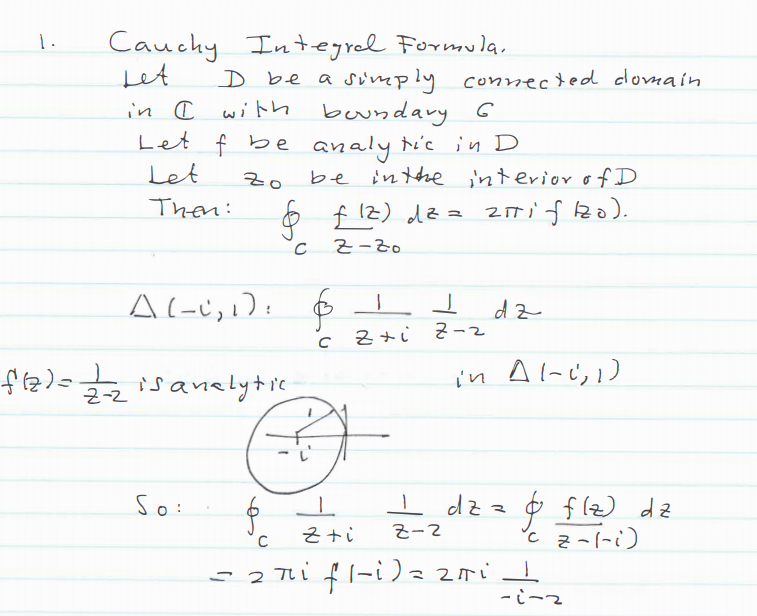 1. Cauchy Integral Formula.
Let D be a simply connected domain
in ℂ with boundary C
Let f be analytic in D
Let z₀ be in the interior of D
Then: ∮_C f(z)/(z-z₀) dz = 2πi f(z₀).
Δ(-i,1): ∮_C 1/(z+i) 1/(z-2) dz
f(z)=1/(z-2) is analytic in Δ(-i,1)
1
-i
So: ∮_C 1/(z+i) 1/(z-2) dz = ∮_C f(z)/(z-(-i)) dz
= 2πi f(-i) = 2πi 1/(-i-2)